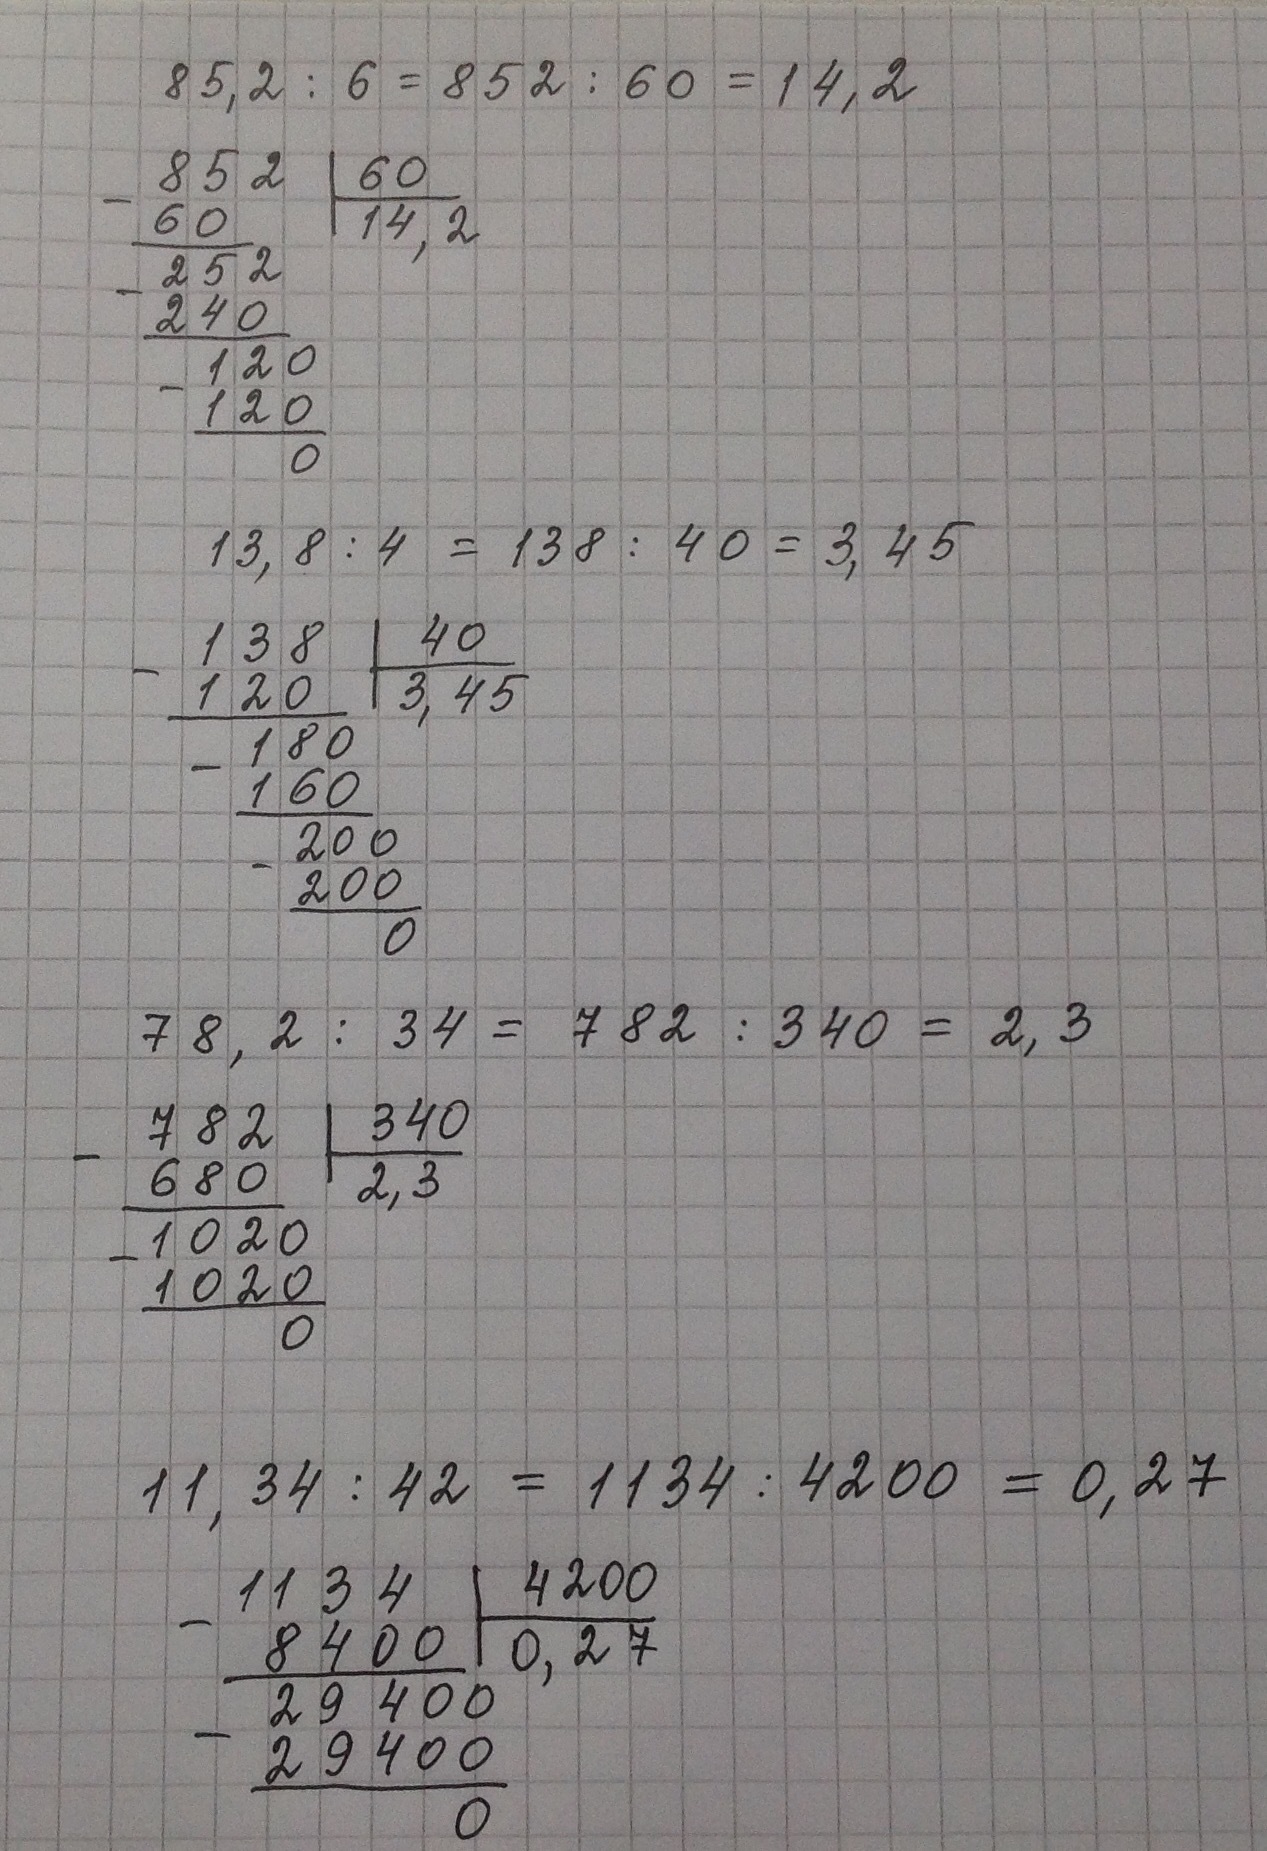 85,2 : 6 = 852 : 60 = 14,2
- 852 | 60
60 | 14,2
- 252
240
- 120
120
0
13,8 : 4 = 138 : 40 = 3,45
- 138 | 40
120 | 3,45
- 180
160
- 200
200
0
78,2 : 34 = 782 : 340 = 2,3
- 782 | 340
680 | 2,3
- 1020
1020
0
11,34 : 42 = 1134 : 4200 = 0,27
- 1134 | 4200
8400 | 0,27
- 29400
29400
0